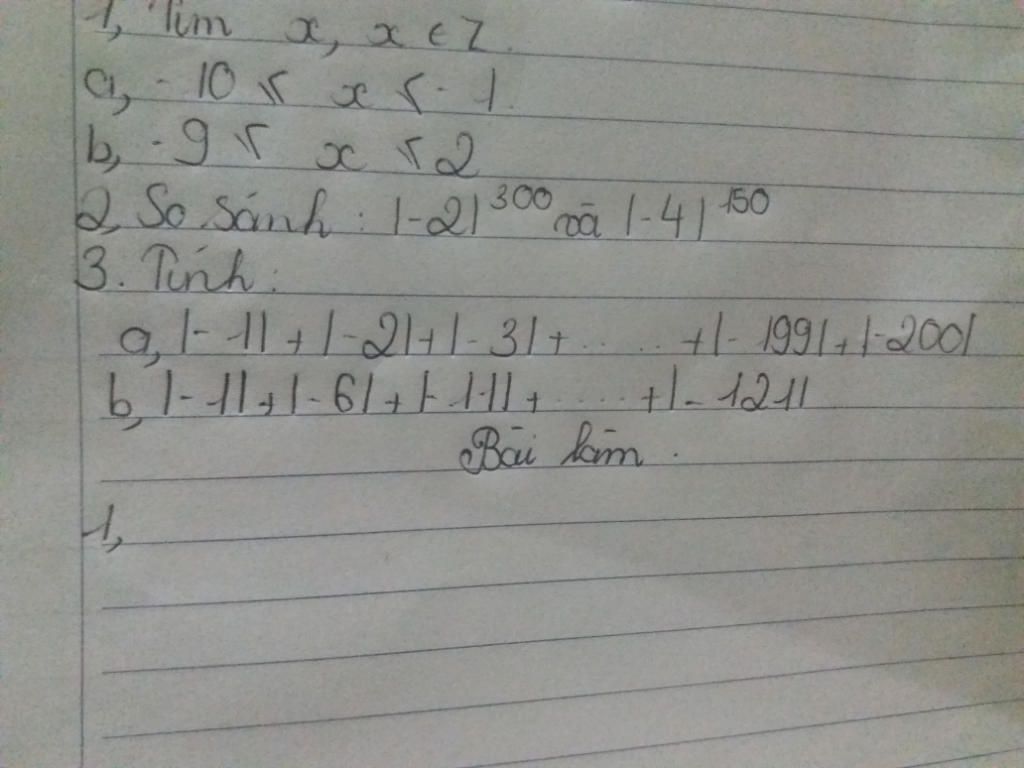 1, Tìm x, x ∈ Z.
a, -10 < x < -1.
b, -9 < x < 2
2, So sánh: |-2|³⁰⁰ và |-4|¹⁵⁰
3. Tính:
a, |-1| + |-2| + |-3| + ..... + |-199| + |-200|
b, |-1| + |-6| + |-11| + ..... + |-121|
Bài làm.
1,